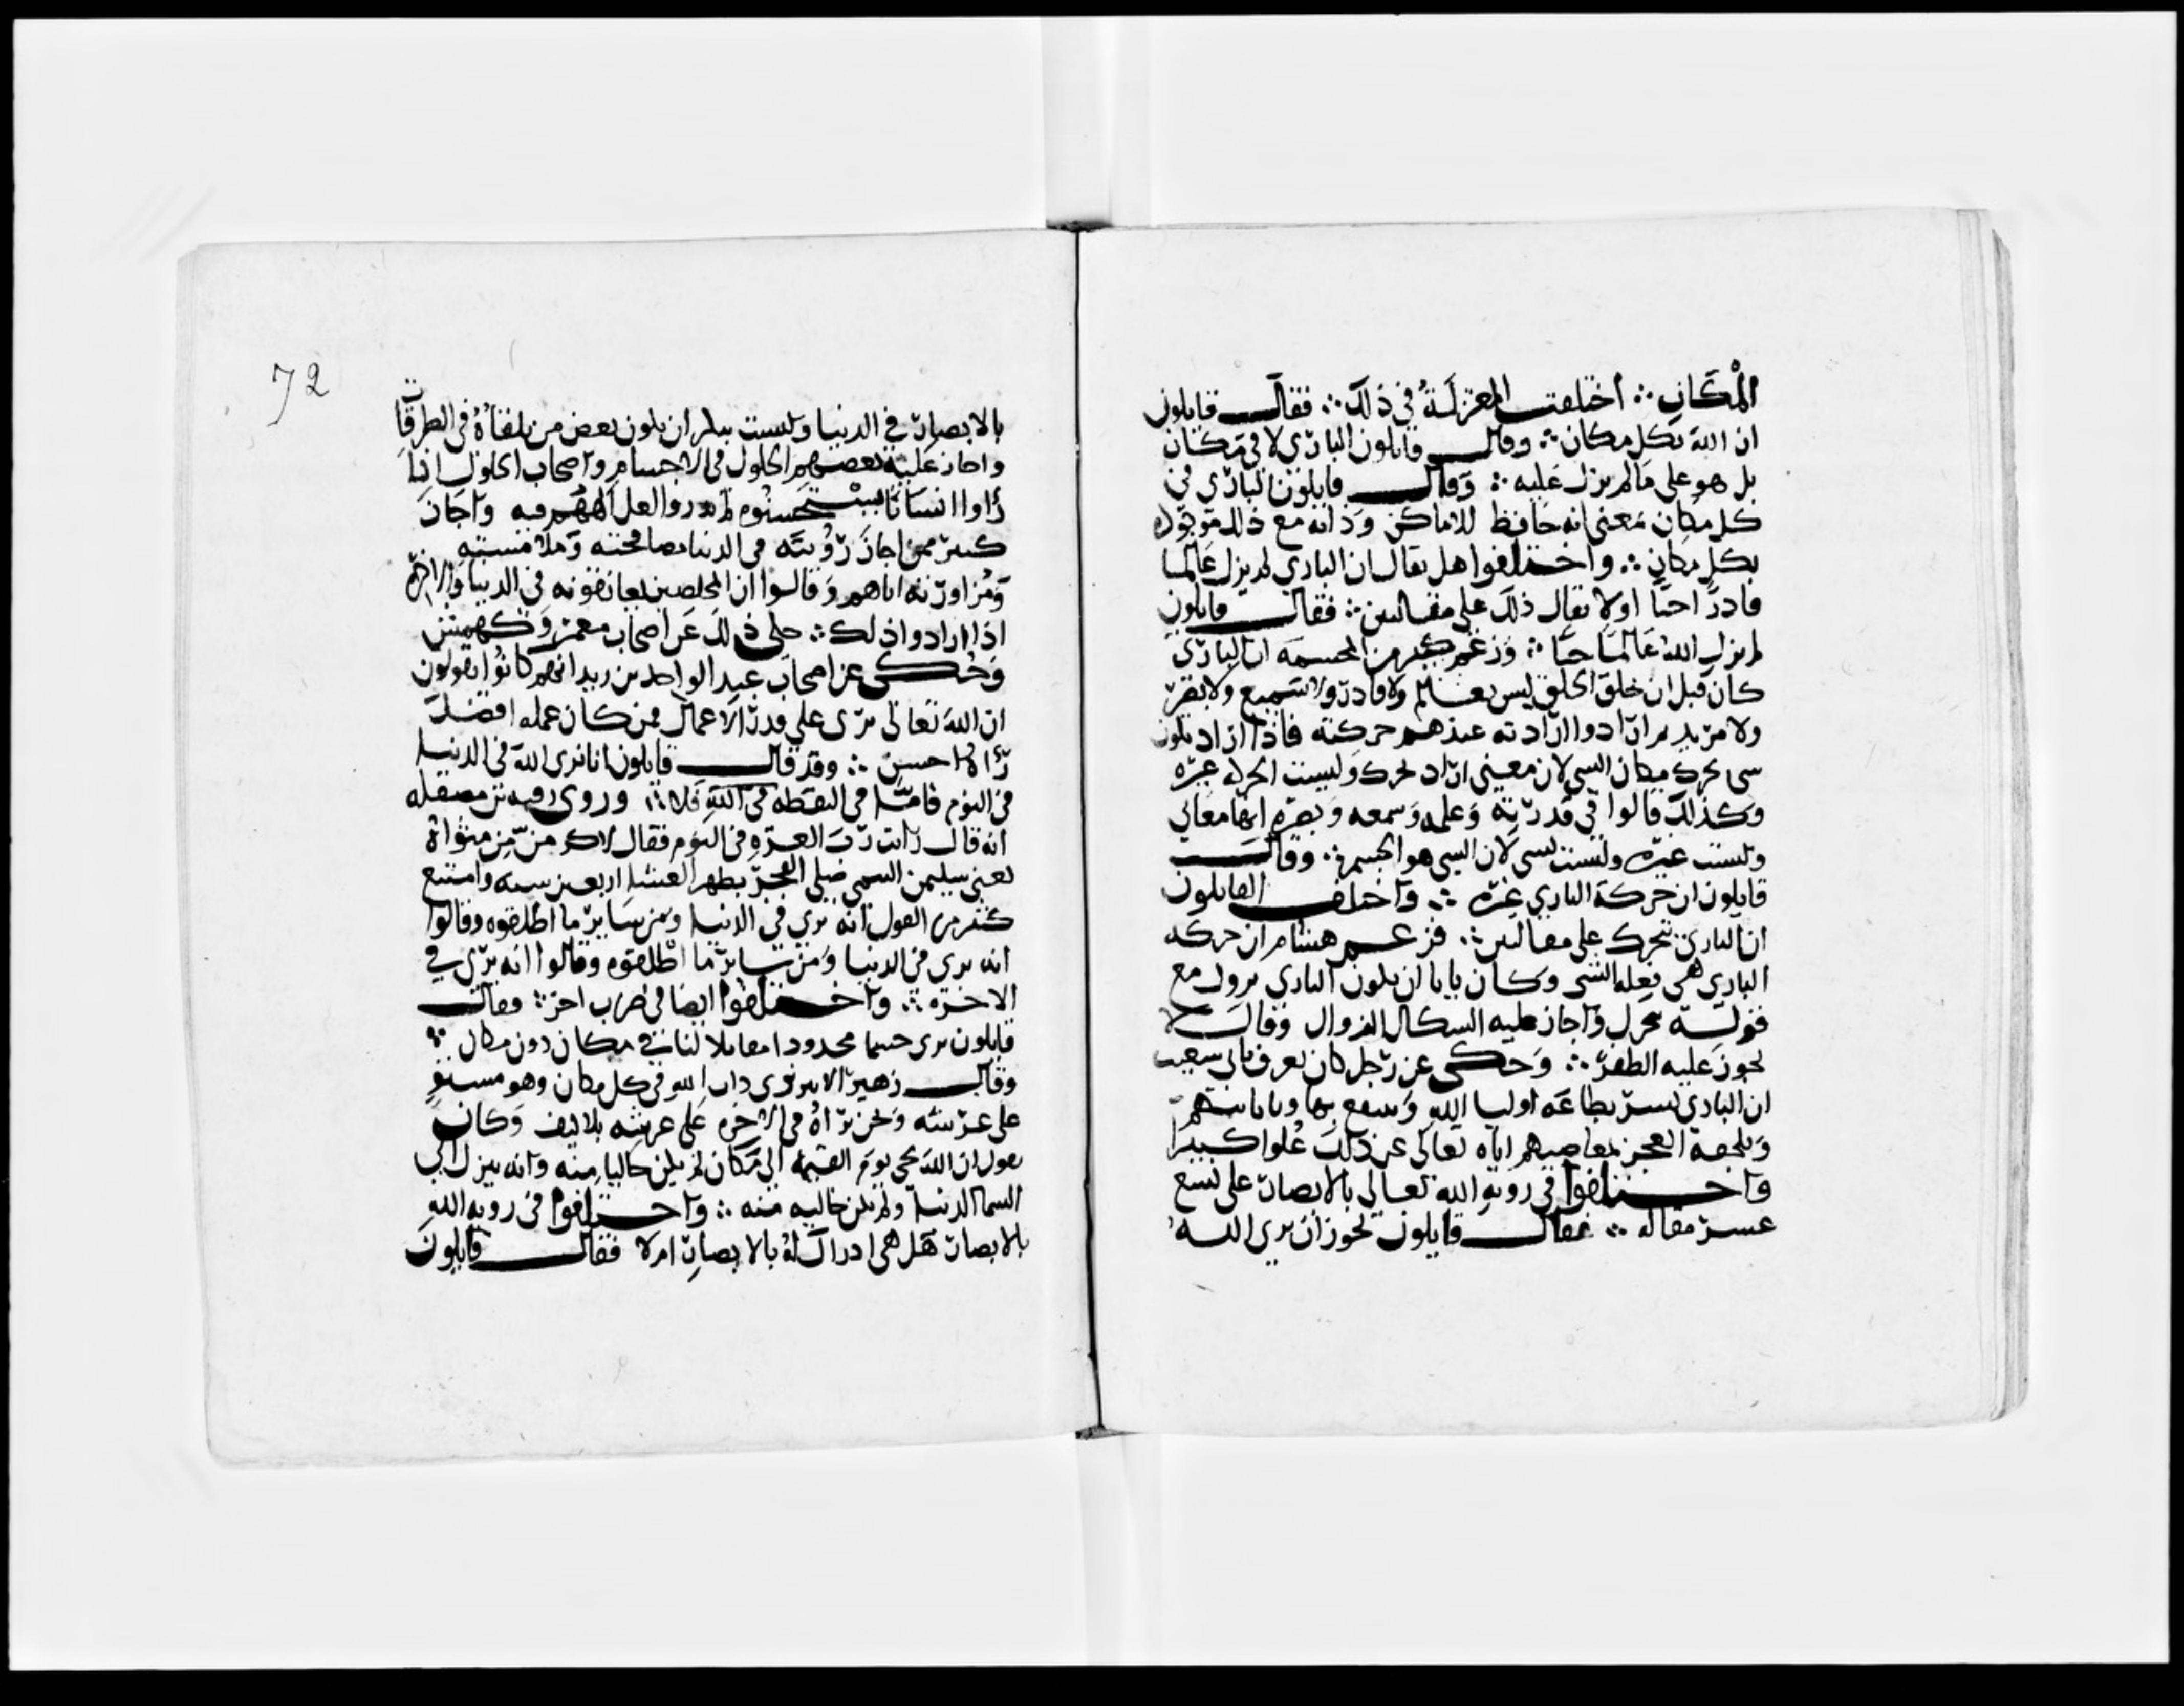 المكان ∴ اختلفت المعتزلة في ذلك ∴ فقال قايلون
ان الله بكل مكان ∴ وقال قايلون الباري لا في مكان
بل هو على ما لم يزل عليه ∴ وقال قايلون الباري في
كل مكان بمعنى انه حافظ للاماكن وذاته مع ذلك موجودة
بكل مكان ∴ واختلفوا هل يقال ان الباري لم يزل عالما
قادرا حيا او لا يقال ذلك على مقالتين ∴ فقال قايلون
لم يزل الله عالما حيا ∴ وزعم كثير من المجسمة ان الباري
كان قبل ان خلق الخلق ليس بعالم ولا قادر ولا سميع ولا بصير
ولا مريد ثم اراد وارادته عندهم حركته فاذا اراد تكون
شي تحرك فكان الشي لان معنى اراد تحرك وليست الحركة غيره
وكذلك قالوا في قدرته وعلمه وسمعه وبصره انها معاني
وليست غيره وليست بشي لان الشي هو الجسم ∴ وقال
قايلون ان حركة الباري غيره ∴ واختلف القايلون
ان الباري يتحرك على مقالتين ∴ فزعم هشام ان حركة
الباري هي فعله الشي وكان يابا ان يكون الباري يزول مع
قوله يتحرك واجاز عليه السكاك الزوال وقال لا
يجوز عليه الطفر ∴ وحكى عن رجل كان يعرف بابي شعيب
ان الباري يسر بطاعة اوليا الله وينتفع بها وبانابتهم
ويلحقه العجز بمعاصيهم اياه تعالى عن ذلك علوا كبيرا
واختلفوا في روية الله تعالى بالابصار على تسع
عشر مقالة ∴ فقال قايلون يجوز ان يرى الله
72
بالابصار في الدنيا وليست ينكر ان يكون بعض من يلقاه في الطرقات
واجاز عليه بعضهم الحلول في الاجسام واصحاب الحلول اذا
راوا انسانا يستحسنوه لم يدروا لعل الههم فيه واجاز
كثير ممن اجاز رويته في الدنيا مصافحته وملامسته
ومزاورته اياهم وقالوا ان المخلصين يعانقونه في الدنيا والاخرة
اذا ارادوا ذلك ∴ حكى ذلك عن اصحاب مضر وكهمس
وحكى عن اصحاب عبد الواحد بن زيد انهم كانوا يقولون
ان الله تعالى يرى على قدر الاعمال فمن كان عمله افضل
راه احسن ∴ وقد قال قايلون انا نرى الله في الدنيا
في النوم فاما في اليقظة فلا ∴ وروى رقبة بن مصقله
انه قال رايت رب العزة في النوم فقال لاكرمن مثواه
يعني سليمن التيمي صلى الفجر بطهر العشا اربعين سنه وامتنع
كثير من القول انه يرى في الدنيا ومن ساير ما اطلقوه وقالوا
انه يرى في الدنيا ومن ساير ما اطلقوه وقالوا انه يرى في
الاخرة ∴ واختلفوا ايضا في ضرب اخر ∴ فقال
قايلون نرى جسما محدودا مقابلا لنا في مكان دون مكان ∴
وقال زهير الاثري ذات الله في كل مكان وهو مستو
على عرشه ونحن نراه في الاخرة على عرشه بلا كيف وكان
يقول ان الله يجي يوم القيمة الى مكان لم يكن خاليا منه وانه ينزل الى
السما الدنيا ولم تكن خاليه منه ∴ واختلفوا في روية الله
بالابصار هل هي ادراك له بالابصار ام لا فقال قايلون